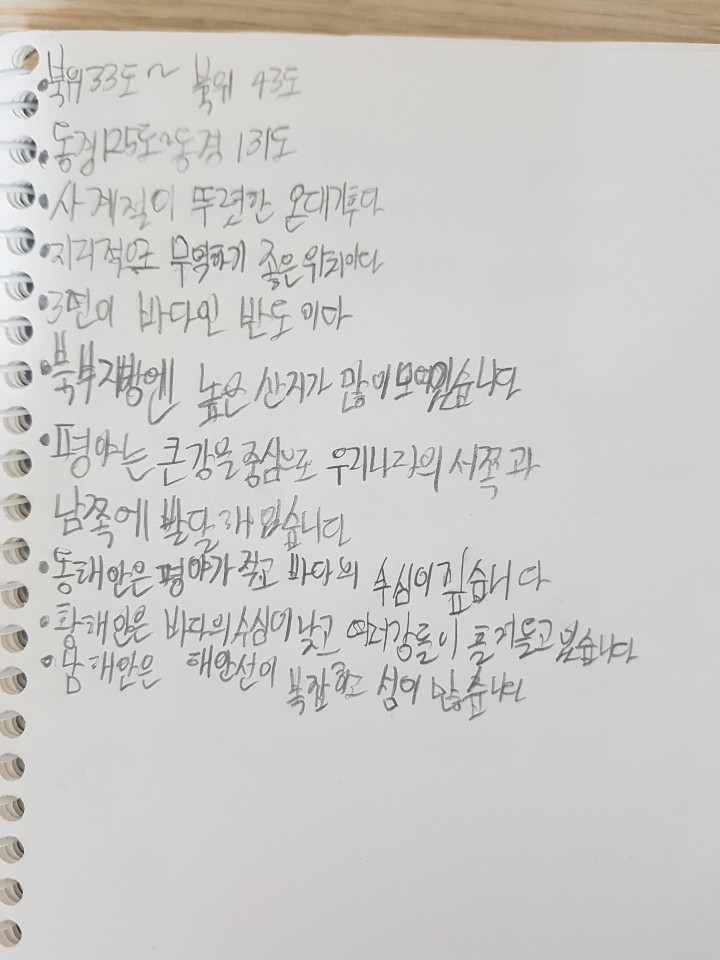 •북위33도~ 북위 43도
•동경125도~동경 131도
•사계절이 뚜렷한 온대기후다
•지리적으로 무역하기 좋은위치이다
•3면이 바다인 반도이다
•북부지방엔 높은 산지가 많이모여있습니다
•평야는 큰강을중심으로 우리나라의 서쪽과
남쪽에 발달해있습니다
•동해안은 평야가 적고 바다의 수심이 깊습니다
•황해안은 바다의수심이 낮고 여러강들이 흘러들고있습니다
•남해안은 해안선이 복잡하고 섬이 많습니다